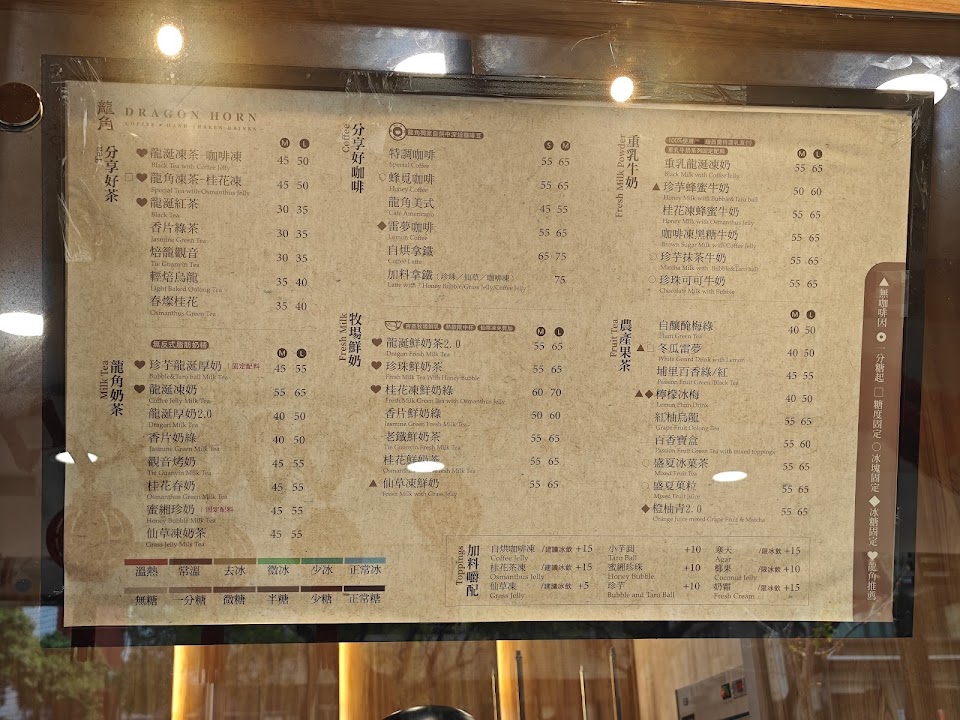 龍角 DRAGON HORN
COFFEE • HAND-SHAKEN DRINKS
分享好茶
Tea
M L
♥龍涎凍茶-咖啡凍 45 50
Black Tea with Coffee Jelly
□♥龍角凍茶-桂花凍 45 50
Special Tea with Osmanthus Jelly
♥龍涎紅茶 30 35
Black Tea
香片綠茶 30 35
Jasmine Green Tea
焙籠觀音 30 35
Tie Guanyin Tea
輕焙烏龍 35 40
Light Baked Oolong Tea
春燦桂花 35 40
Osmanthus Green Tea
龍角奶茶
Milk Tea
無反式脂肪奶精
M L
♥珍芋龍涎厚奶 | 固定配料 45 55
Bubble&Taro ball Milk Tea
♥龍涎凍奶 55 65
Coffee Jelly Milk Tea
龍涎厚奶2.0 40 50
Black Milk Tea
香片奶綠 40 50
Jasmine Green Milk Tea
觀音烤奶 45 55
Tie Guanyin Milk Tea
桂花春奶 45 55
Osmanthus Green Milk Tea
蜜緗珍奶 | 固定配料 45 55
Honey Bubble Milk Tea
仙草凍奶茶 45 55
Grass Jelly Milk Tea
溫熱 常溫 去冰 微冰 少冰 正常冰
無糖 一分糖 微糖 半糖 少糖 正常糖
分享好咖啡
Coffee
龍角獨家自烘中深焙咖啡豆
S M
特調咖啡 55 65
Special Coffee
蜂覓咖啡 55 65
Honey Coffee
龍角美式 45 55
Cafe Americano
◆雷夢咖啡 55 65
Lemon Coffee
自烘拿鐵 65 75
Coffee Latte
加料拿鐵（珍珠／仙草／咖啡凍） 75
Latte with (Honey Bubble/Grass Jelly/Coffee Jelly)
牧場鮮奶
Fresh Milk
M L
♥龍涎鮮奶茶2.0 55 65
Dragon Fresh Milk Tea
♥珍珠鮮奶茶 55 65
Fresh Milk Tea With Honey Bubble
♥桂花凍鮮奶綠 60 70
Fresh Milk Green Tea with Osmanthus Jelly
香片鮮奶綠 50 60
Jasmine Green Fresh Milk Tea
老鐵鮮奶茶 55 65
Tie Guanyin Fresh Milk Tea
桂花鮮奶 55 65
Osmanthus Fresh Milk Tea
▲仙草凍鮮奶 55 65
Fresh Milk with Grass Jelly
重乳牛奶
Fresh Milk Powder
M L
重乳龍涎凍奶 55 65
Black Milk with Coffee Jelly
▲珍芋蜂蜜牛奶 50 60
Honey Milk with Bubble&Taro ball
桂花凍蜂蜜牛奶 55 65
Honey Milk with Osmanthus Jelly
咖啡凍黑糖牛奶 55 65
Brown Sugar Milk with Coffee Jelly
□珍芋抹茶牛奶 55 65
Matcha Milk with Bubble&Taro ball
○珍珠可可牛奶 55 65
Chocolate Milk with Bubble
農產果茶
Fruit Tea
M L
自釀醃梅綠 40 50
Plum Green Tea
▲□冬瓜雷夢 40 50
White Gourd Drink with Lemon
埔里百香綠/紅 45 55
Passion Fruit Green/Black Tea
▲◆檸檬冰梅 40 50
Lemon Plum Drink
紅柚烏龍 55 65
Grape Fruit Oolong Tea
百香寶盒 55 60
Passion Fruit Green Tea with mixed toppings
盛夏冰菓茶 55 65
Mixed Fruit Tea
盛夏菓粒 55 65
Mixed Fruit Juice
◆橙柚青2.0 55 65
Orange Juice mixed Grape Fruit & Matcha
加料嚼配
Toppings
自烘咖啡凍 /建議冰飲 +15
Coffee Jelly
桂花茶凍 /建議冰飲 +15
Osmanthus Jelly
仙草凍 /建議冰飲 +5
Grass Jelly
小芋圓 +10
Taro Ball
蜜緗珍珠 +10
Honey Bubble
珍芋 +10
Bubble and Taro Ball
寒天 /限冰飲 +15
Agar
椰果 /限冰飲 +10
Coconut Jelly
奶霜 /限冰飲 +15
Fresh Cream
▲無咖啡因 一分糖起 □糖度固定 ○冰塊固定 ◆冰糖固定 ♥龍角推薦